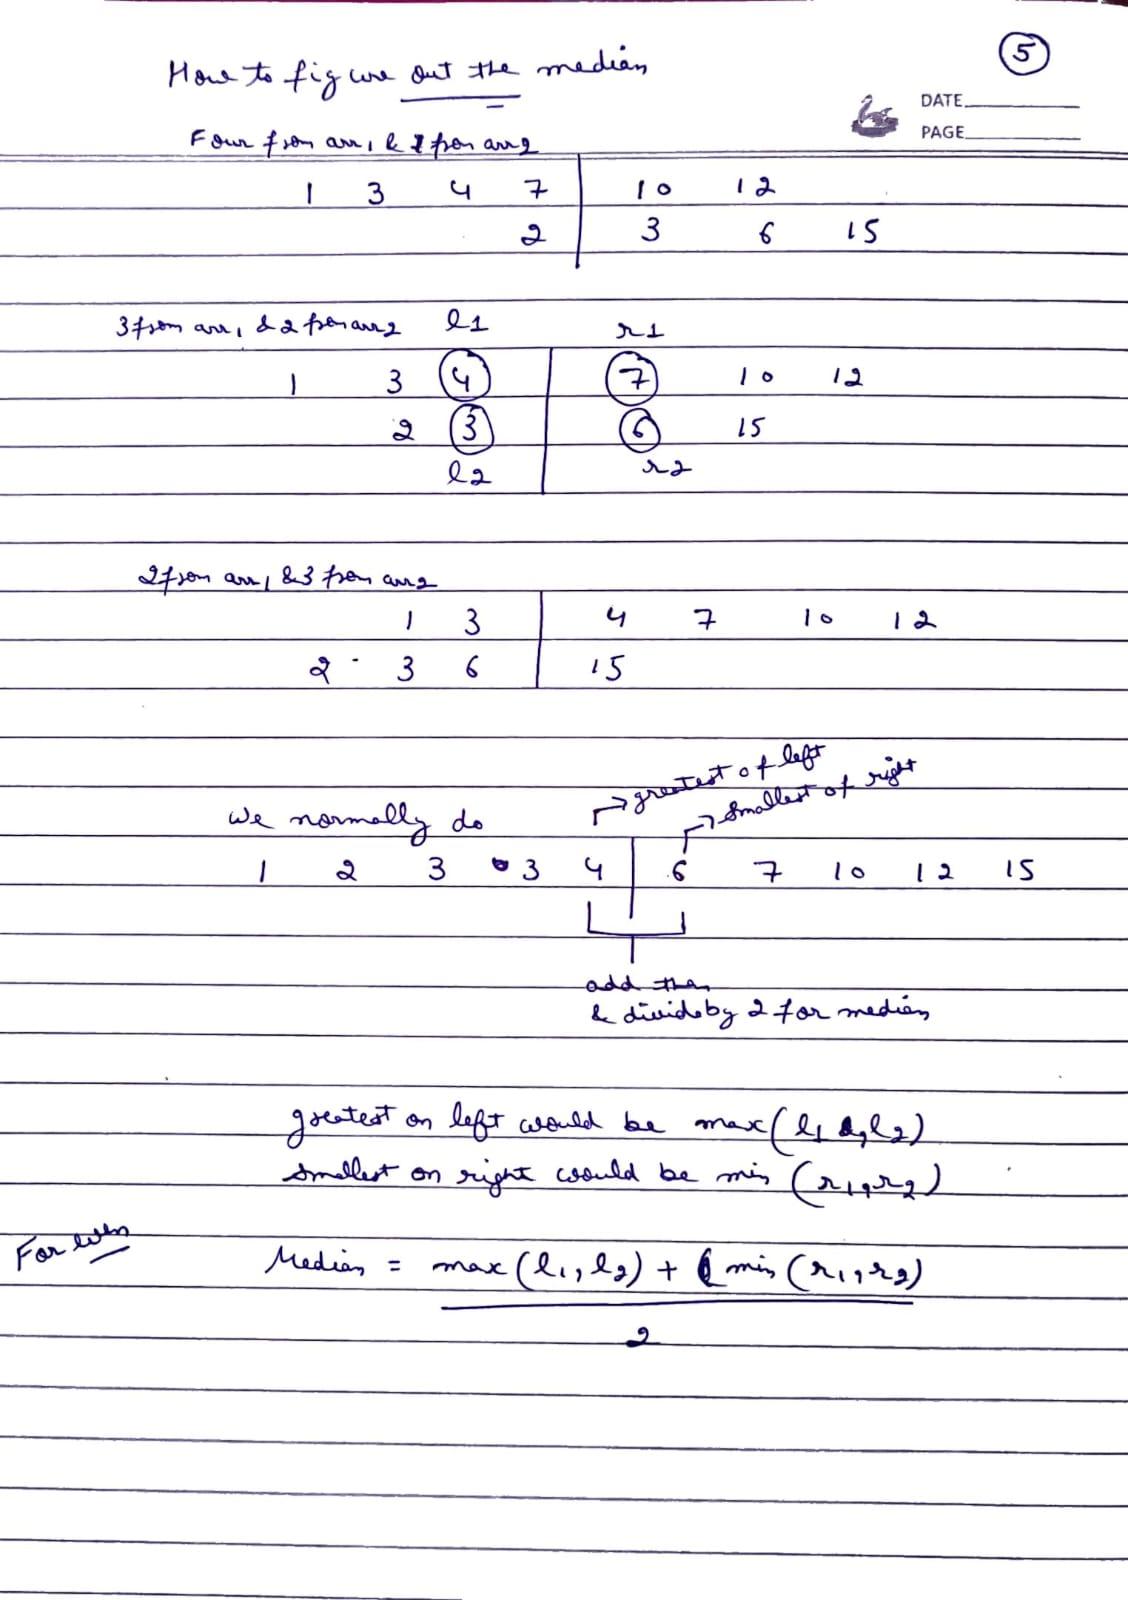 5
How to figure out the median
DATE
PAGE
Four from arr1 & 1 from arr2
1 3 4 7 10 12
2 3 6 15
3 from arr1 & 2 from arr2 l1 r1
1 3 4 7 10 12
2 3 6 15
l2 r2
2 from arr1 & 3 from arr2
1 3 4 7 10 12
2 3 6 15
greatest of left
smallest of right
we normally do
1 2 3 3 4 6 7 10 12 15
add them
& divide by 2 for median
greatest on left would be max(l1, l2)
smallest on right would be min (r1, r2)
For even
Median = max(l1, l2) + min(r1, r2)
2